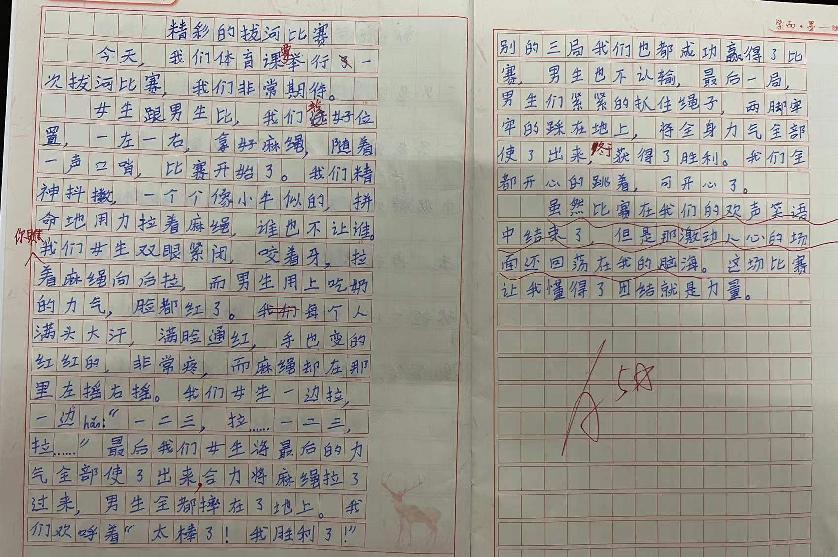 精彩的拔河比赛
今天，我们体育课举行了一
次拔河比赛，我们非常期待。
女生跟男生比，我们站好位
置，一左一右，拿好麻绳，随着
一声口哨，比赛开始了。我们精
神抖擞，一个个像小牛似的，拼
命地用力拉着麻绳，谁也不让谁。
你瞧
我们女生双眼紧闭，咬着牙，拉
着麻绳向后拉，而男生用上吃奶
的力气，脸都红了。我们每个人
满头大汗，满脸通红，手也变的
红红的，非常疼，而麻绳却在那
里左摇右摇。我们女生一边拉，
一边hǎn：“一二三，拉……一二三，
拉……”最后我们女生将最后的力
气全部使了出来，合力将麻绳拉了
过来，男生全都摔在了地上。我
们欢呼着“太棒了！我胜利了！”
别的三局我们也都成功赢得了比
赛，男生也不认输，最后一局，
男生们紧紧的扒住绳子，两脚牢
牢的踩在地上，将全身力气全部
使了出来，终于获得了胜利。我们全
都开心的跳着，可开心了。
虽然比赛在我们的欢声笑语
中结束了，但是那激动人心的场
面还回荡在我的脑海。这场比赛
让我懂得了团结就是力量。